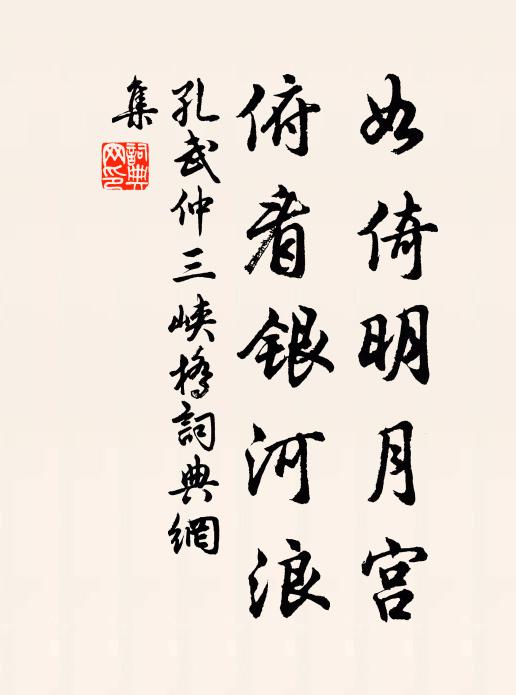 如倚明月宫
俯看银河浪
孔武仲三峡橋詞典網
集
詞典
网印